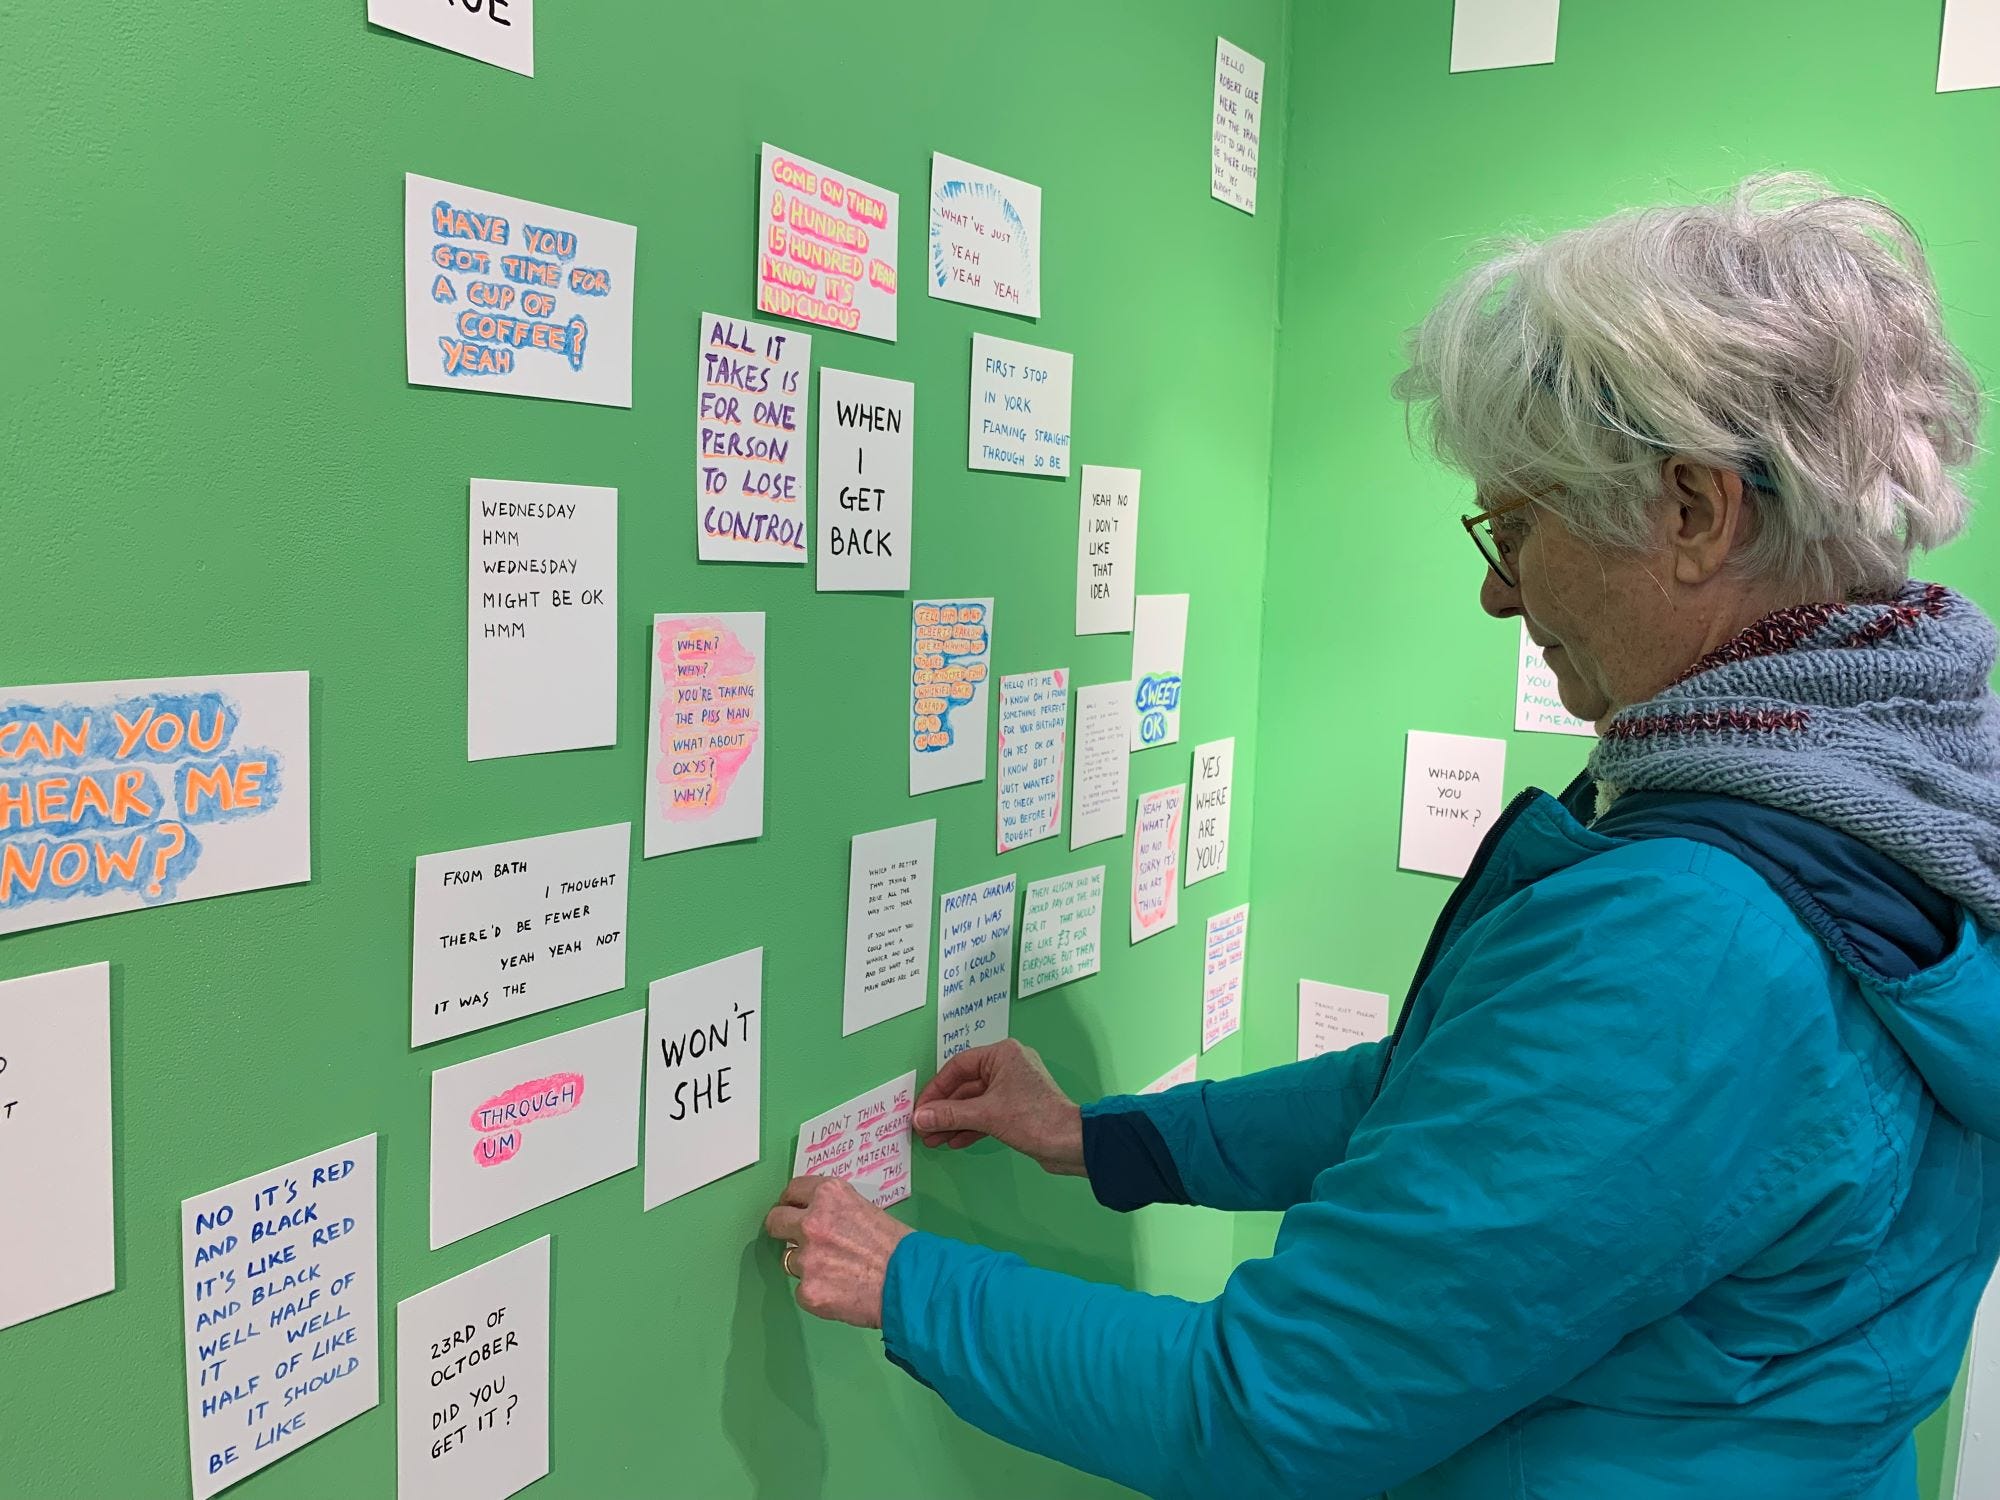 HAVE YOU
GOT TIME FOR
A CUP OF
COFFEE?
YEAH
COME ON THEN
8 HUNDRED
15 HUNDRED YEAH
I KNOW IT'S
RIDICULOUS
WHAT'VE JUST
YEAH
YEAH YEAH
HELLO
ROBERT COLE
HERE I'M
ON THE TRAIN
JUST TO SAY I'LL
BE THERE LATER
YES YES
ALL IT
TAKES IS
FOR ONE
PERSON
TO LOSE
CONTROL
WHEN
I
GET
BACK
FIRST STOP
IN YORK
FLAMING STRAIGHT
THROUGH SO BE
YEAH NO
I DON'T
LIKE
THAT
IDEA
WEDNESDAY
HMM
WEDNESDAY
MIGHT BE OK
HMM
WHEN?
WHY?
YOU'RE TAKING
THE PISS MAN
WHAT ABOUT
OXYS?
WHY?
TELL HIM I'M AT
ALBERTS BARROW
WE'RE HAVING HOT
TODDIES
HE'S KNOCKED FOUR
WHISKIES BACK
ALREADY
HELLO IT'S ME
I KNOW OH I FOUND
SOMETHING PERFECT
FOR YOUR BIRTHDAY
OH YES OK OK
I KNOW BUT I
JUST WANTED
TO CHECK WITH
YOU BEFORE I
BOUGHT IT
SWEET
OK
YOU
KNOW
I MEAN
YES
WHERE
ARE
YOU?
WHADDA
YOU
THINK?
YEAH YOU
WHAT?
NO NO
SORRY IT'S
AN ART
THING
CAN YOU
HEAR ME
NOW?
FROM BATH
I THOUGHT
THERE'D BE FEWER
YEAH YEAH NOT
IT WAS THE
WHICH IS BETTER
THAN TRYING TO
DRIVE ALL THE
WAY INTO YORK
IF YOU WANT YOU
COULD HAVE A
WANDER AND LOOK
AND SEE WHAT THE
MAIN ROADS ARE LIKE
PROPPA CHARVAS
I WISH I WAS
WITH YOU NOW
COS I COULD
HAVE A DRINK
WHADDAYA MEAN
THAT'S SO
UNFAIR
THEN ALISON SAID WE
SHOULD PAY ON THE CARD
FOR IT THAT WOULD
BE LIKE £3 FOR
EVERYONE BUT THEN
THE OTHERS SAID THAT
I MIGHT GET
THE METRO
OR A CAB
FROM HERE
WON'T
SHE
THROUGH
UM
I DON'T THINK WE
MANAGED TO GENERATE
NEW MATERIAL
THIS
ANYWAY
NO IT'S RED
AND BLACK
IT'S LIKE RED
AND BLACK
WELL HALF OF
IT WELL
HALF OF LIKE
IT SHOULD
BE LIKE
23RD OF
OCTOBER
DID YOU
GET IT?